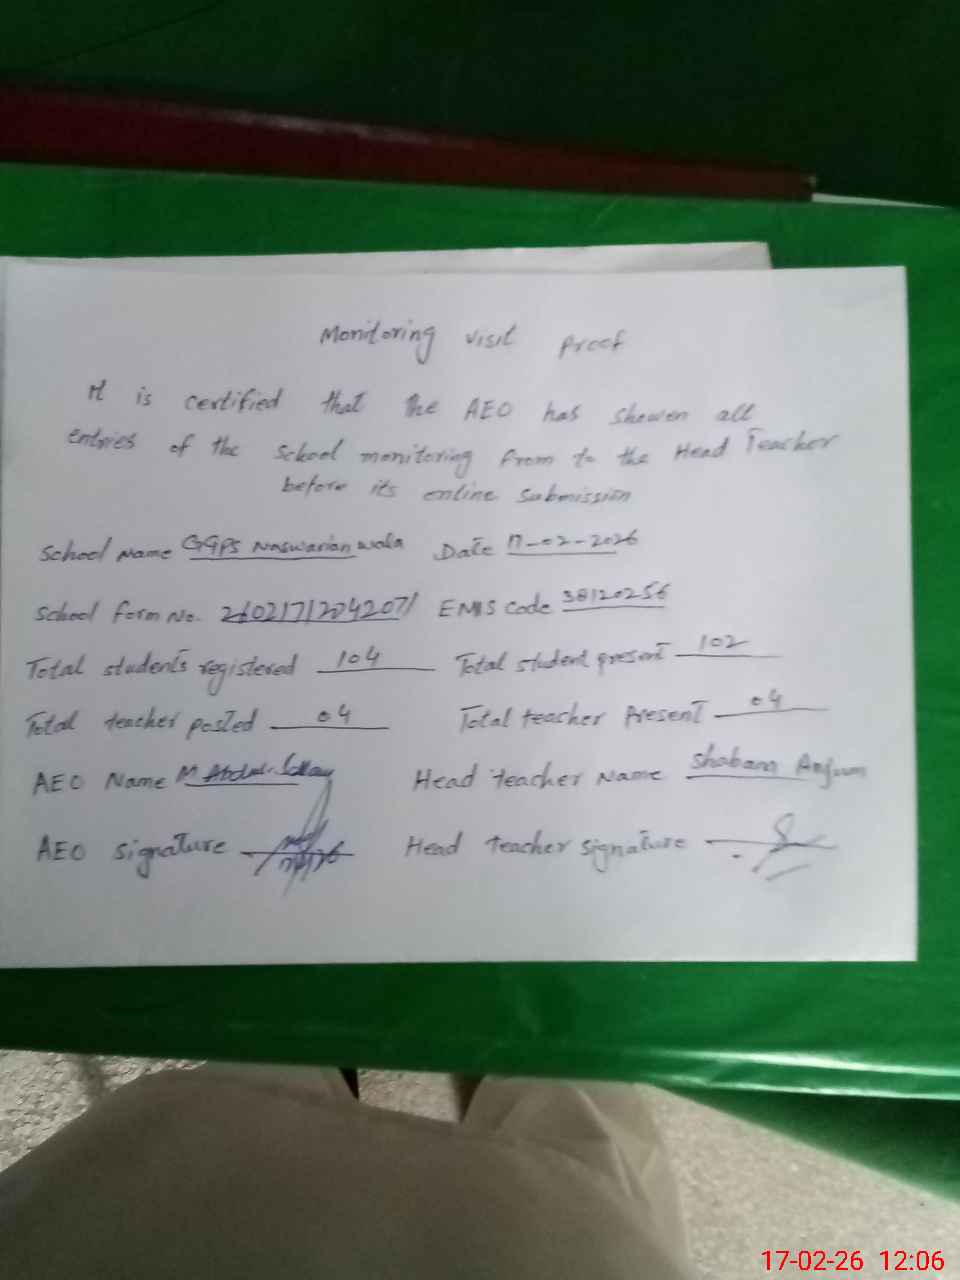 Monitoring visit proof
It is certified that the AEO has showen all
entries of the school monitoring from to the Head Teacher
before its online submission
School Name GGPS Naswarian wala Date 17-02-2026
School form No. EMIS Code 38120256
Total students registered 104 Total student present 102
Total teacher posted 04 Total teacher Present 04
AEO Name M Abdul Head teacher Name Shabana Anjum
AEO signature Head teacher signature
17-02-26 12:06